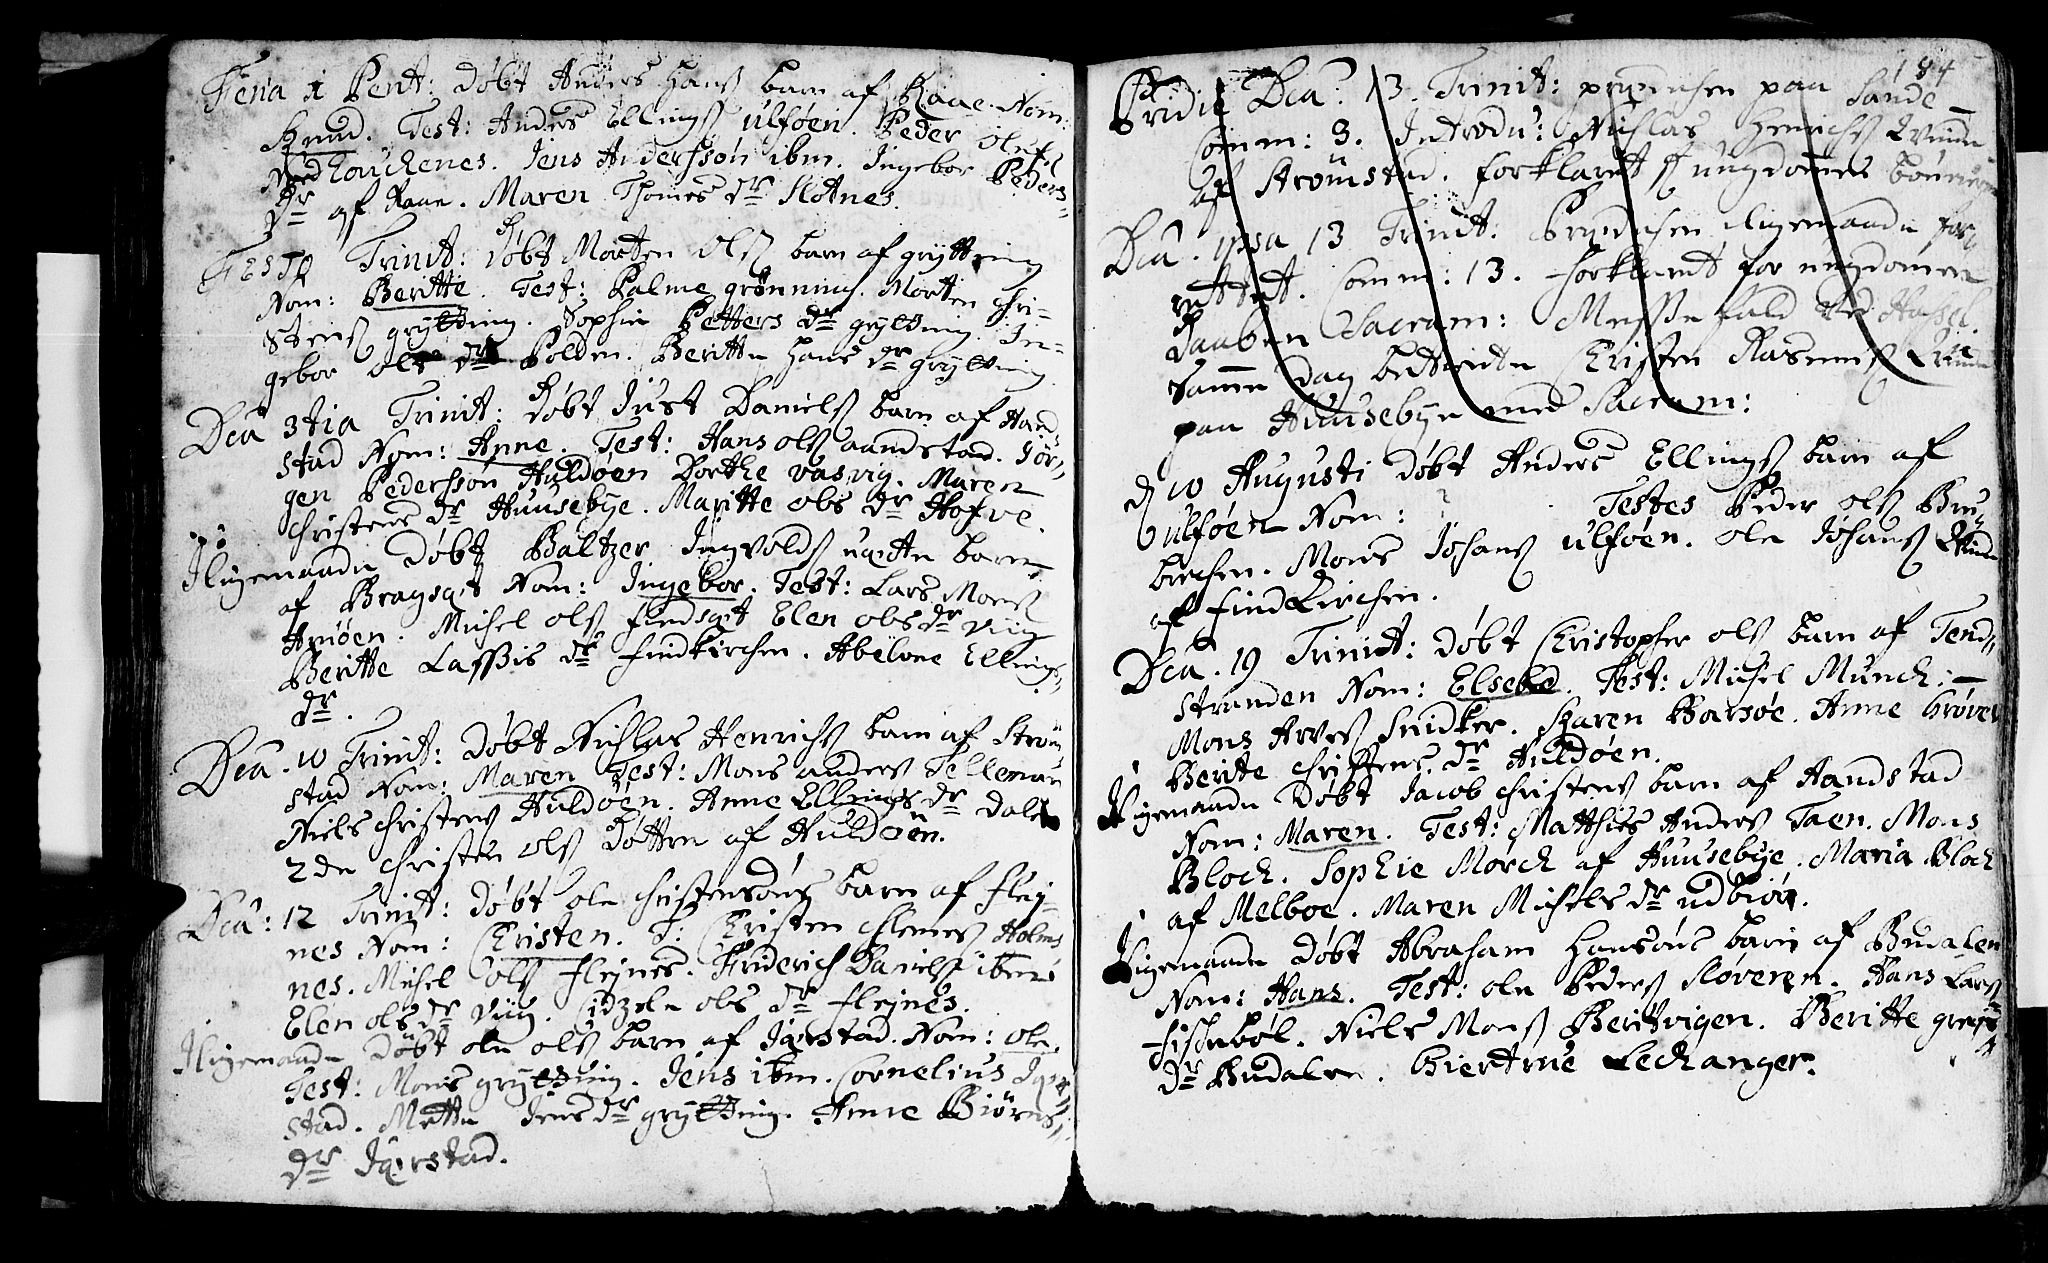 Feria 1 Pent: Døbt Anders Hanß barn af Raae. Nom:
Knud. Test: Anders Ellingß ulføen. Peder Olufs
Jens Anderssøn ibm. Ingebor Peders
dr af Raae. Maren Thomes dr Slotnes.
Festo Trinit: Døbt Morten Olß barn af grytting
Nom: Beritte. Test: Palme grønning. Morten Chri-
stenß grytting. Sophie Petters dr grytting. In-
gebor Ols dr Polden. Beritte Hans dr grytting
Dca 3tia Trinit: Døbt Just Danielß barn af Hand
stad Nom: Anne. Test: Hans olß aandstad. Jør-
gen Pederssøn Huldøen Dorthe vasvig. Maren
Christens dr Huusebye. Maritte ols dr Hofve.
Iligemaade Døbt Baltzer Ingvoldß uægte barn
af Bragsæt Nom: Ingebor. Test: Lars Monß
Arnøen. Michel olß findsæt Elen ols dr viig
Beritte Lassis dr findkirchen. Abelone Ellings
dr.
Dca. 10 Trinit: Døbt Nichlas Henrichß barn af Strøm
stad Nom: Maren Test: Mons anders Telleman
Niels Christens Huldøen. Anne Ellings dr Dale
2de Christen olß Døttre af Huldøen.
Dca: 12 Trinit: Døbt ole Christensøns barn af fley-
nes Nom: Christen. T: Christen Clemeß Holms
nes. Michel olß flejnes. Friderich Danielß ibm:
Elen ols dr viig. Zidzele ols dr flejnes.
Iligemaade Døbt ole olß barn af Jørstad. Nom: ole.
Test: Mons grytting. Jens ibm. Cornelius Jør
stad. Mette Jens dr grytting. Anne Biørns
dr Jørstad.
184
Pridie Dca: 13 Trinit: prædichen paa Sande
Comm: 3. Introdu: Nichlas Henrichß Quinde
af Strømstad. forklaret ungdomes
Dca. ipsa 13 Trinit: Prædichen iligemaade for
rettet. Comm: 13. forklaret for ungdomen
Daaben Sacram: Messefald ved Hassel.
samme dag betiente Christen Rasmusß Quinde
paa Huusebye med Sacram:
d 10 Augusti Døbt Anders Ellingß barn af
ulføen Nom: ? Testes Peder olß Bru
birchen. Mons Johanß ulføen. ole Johanß Quinde
af findkirchen.
Dca. 19 Trinit: Døbt Christopher olß barn af Tend
stranden Nom: Elsebe. Test: Michel Munch: -
Mons Arveß Snidker. Karen Barsøe. Anne Grøver
Berite Christens dr Huldøen.
Iligemaade Døbt Jacob Christens barn af Handstad
Nom: Maren. Test: Matthies Anders Taen. Mons
Bloch. Sophie Morch af Huusebye. Maria Bloch
af Melboe. Maren Michels dr udbiør.
Iligemaade Døbt Abraham Hansøns barn af Budalen
Nom: Hans. Test: ole Peders Sløveren. Hans Larß
fischebøl. Niels Monß Beritvigen. Beritte
dr Budalen. Giertrue Lechanger.